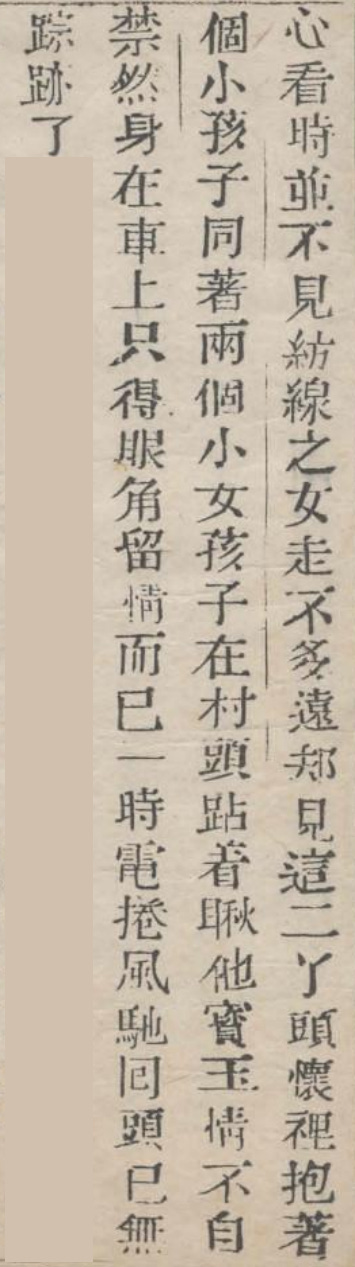 心看時並不見紡線之女走不多遠却見這二丫頭懷裡抱著
個小孩子同著兩個小女孩子在村頭跕着瞅他寳玉情不自
禁然身在車上只得眼角留情而已一時電捲風馳囘頭已無
踪跡了